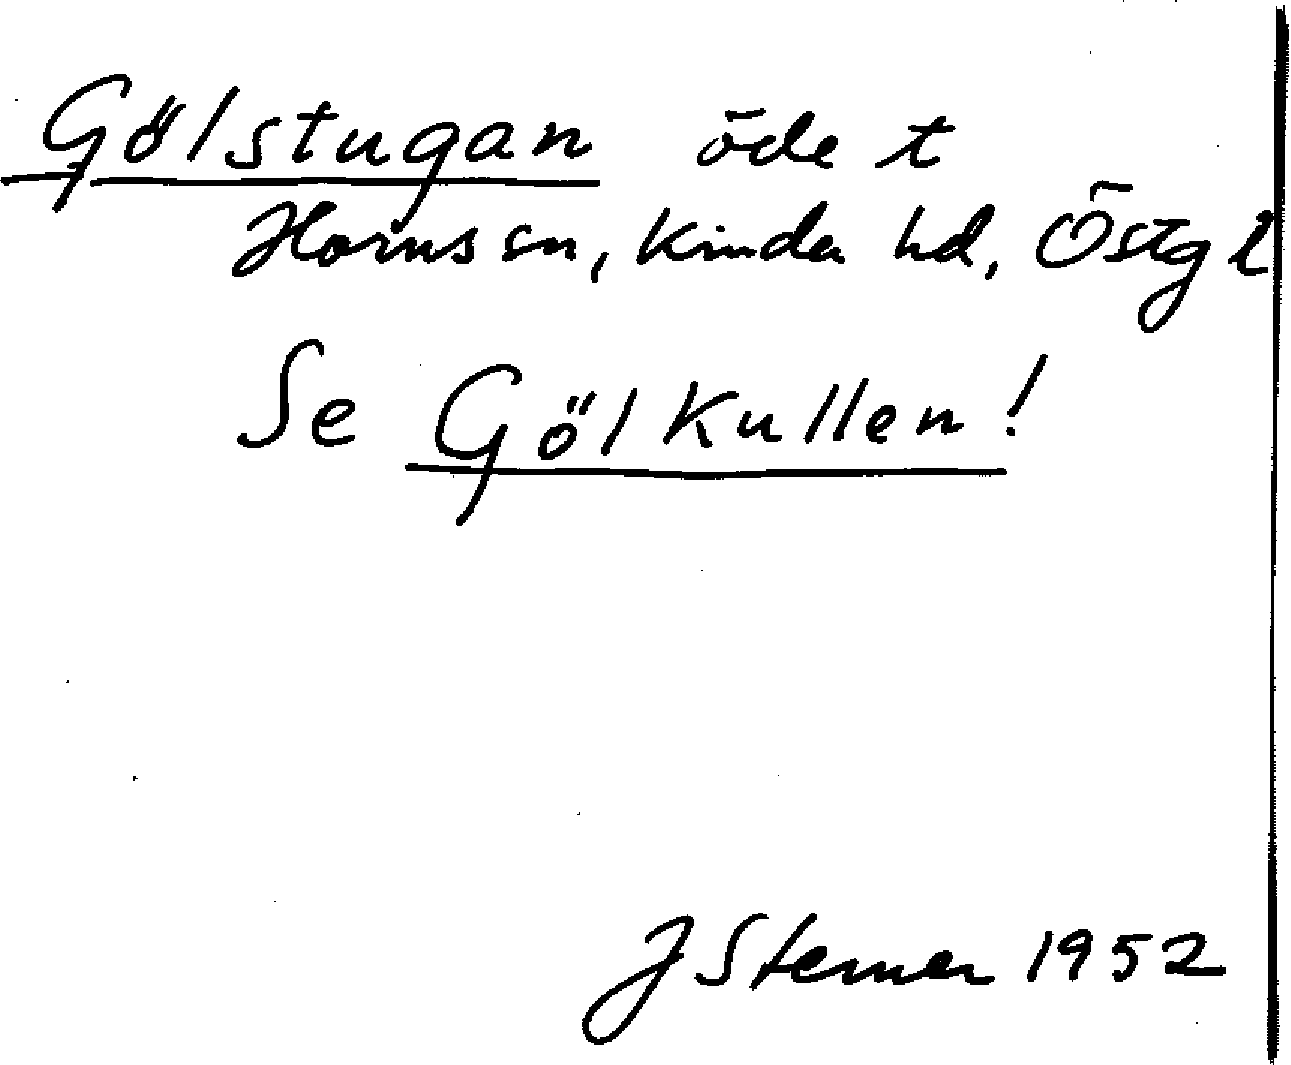 Gölstugan öde t
Horns sn, Kinda hd, Östgl
Se Gölkullen!
J Sterner 1952